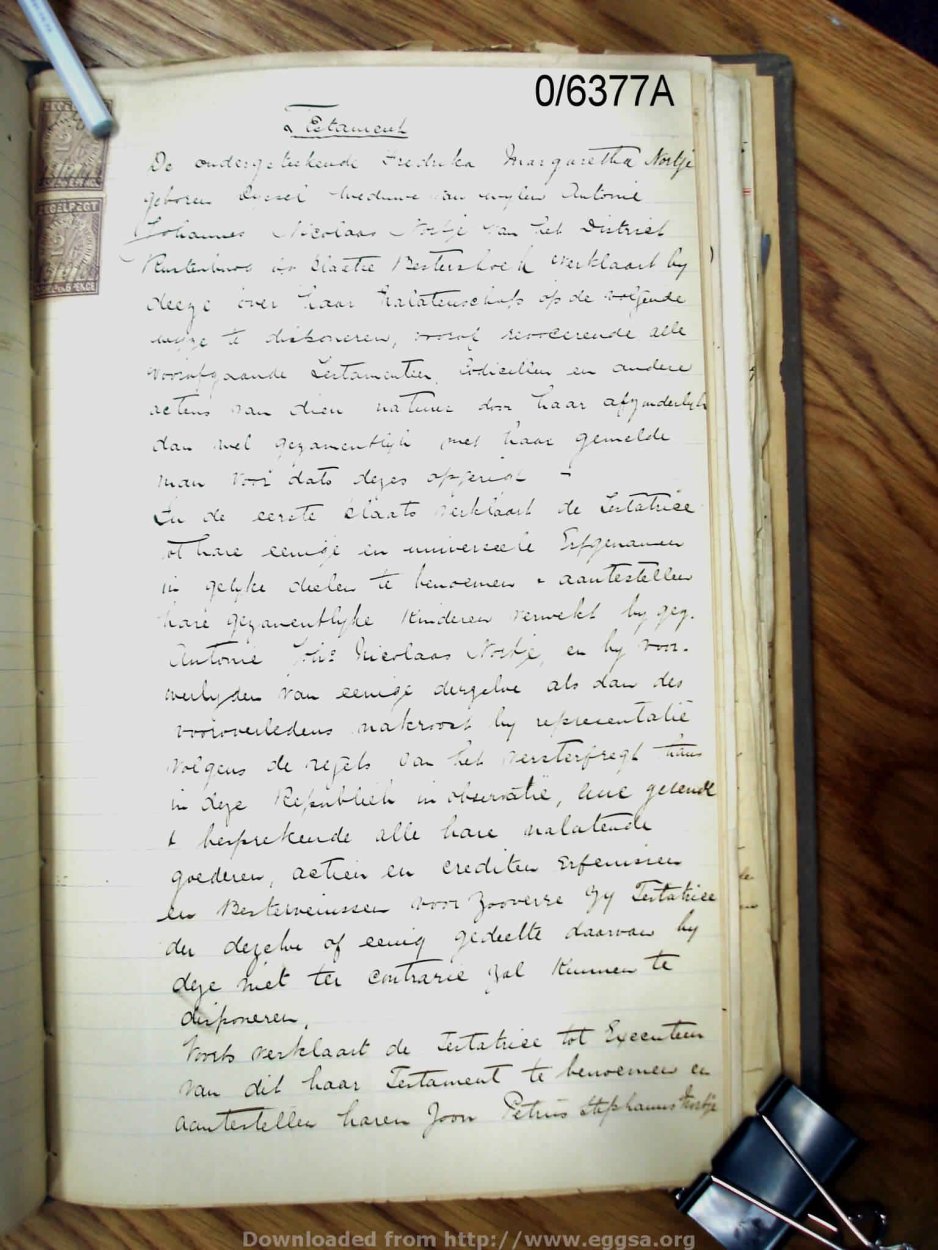 0/6377A
ZEGELREGT
Testament
De ondergeteekende Fredrika Margaretha Nortje
geboren Dressel Weduwe van wylen Antonie
Johannes Nicolaas Nortje van het District
Rustenburg op plaatse Bestershoek verklaart by
deeze over haar nalatenschap op de volgende
wyze te disponeren, vooraf revocerende alle
voorafgaande Testamenten, Codicillen en andere
actens van dien natuur door haar afzonderlyk
dan wel gezamentlyk met haar gemelde
man voor dato dezes opgerigt -
In de eerste plaats verklaart de Testatrice
tot hare eenige en universeele Erfgenamen
in gelyke deelen te benoemen & aantestellen
hare gezamentlyke Kinderen verwekt by geg.
Antonie Johs Nicolaas Nortje, en by voor-
overlyden van eenige derzelve als dan des
vooroverledens nakroost by representatie
volgens de regels van het versterfregt thans
in deze Republiek in observatie,
& besprekende alle hare nalatende
goederen, actien en crediten Erfenissen
en Bestervenissen voor zooverre zy Testatrice
der dezelve of eenig gedeelte daarvan by
deze niet ter contrarie zal Kunnen te
disponeren,
Voorts verklaart de Testatrice tot Executeur
van dit haar Testament te benoemen en
aantestellen haren Zoon Petrus Stephanus Nortje
Downloaded from http://www.eggsa.org